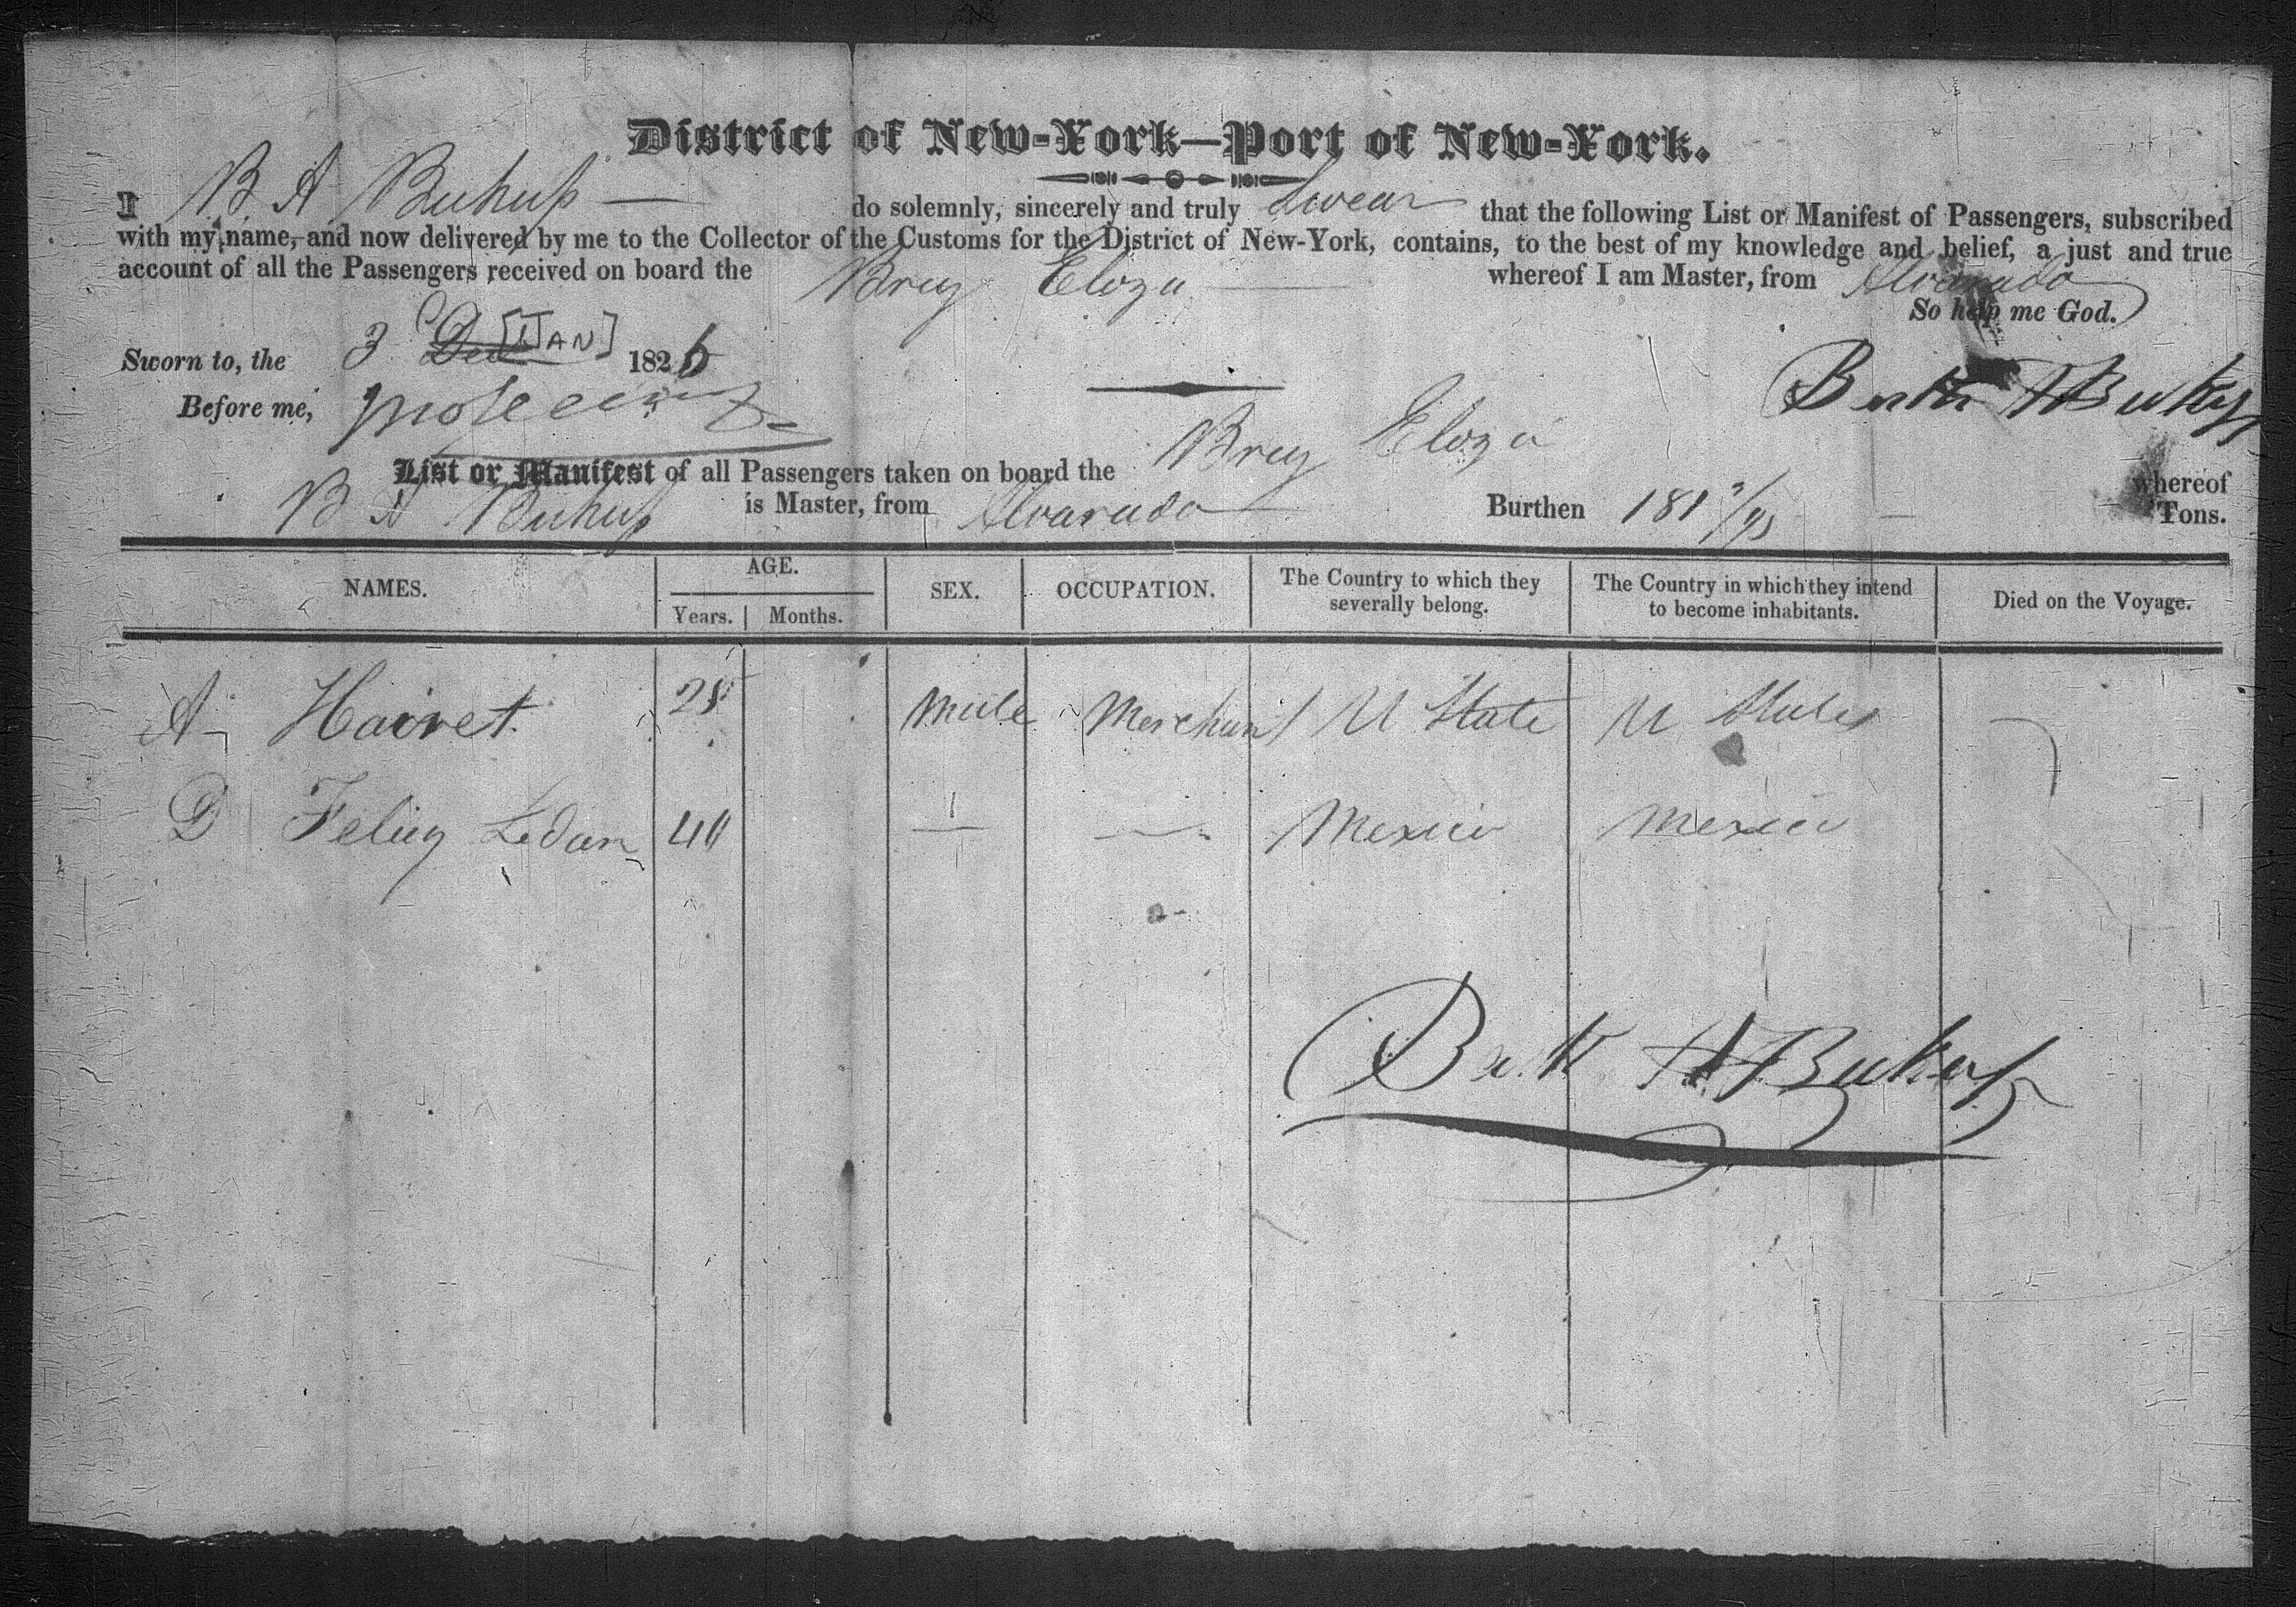 District of New-York—Port of New-York.
I B A Buhup do solemnly, sincerely and truly Swear that the following List or Manifest of Passengers, subscribed
with my name, and now delivered by me to the Collector of the Customs for the District of New-York, contains, to the best of my knowledge and belief, a just and true
account of all the Passengers received on board the Brig Eliza whereof I am Master, from Alvarado
So help me God.
Sworn to, the 3 Dec [JAN] 1826
Before me,
List or Manifest of all Passengers taken on board the Brig Eliza whereof
B A Buhup is Master, from Alvarado Burthen 181 /95 Tons.
NAMES. AGE. Years. Months. SEX. OCCUPATION. The Country to which they severally belong. The Country in which they intend to become inhabitants. Died on the Voyage.
A Hairet 25 Male Merchant U State U States
D Feliey Ledan 40 — — Mexico Mexico